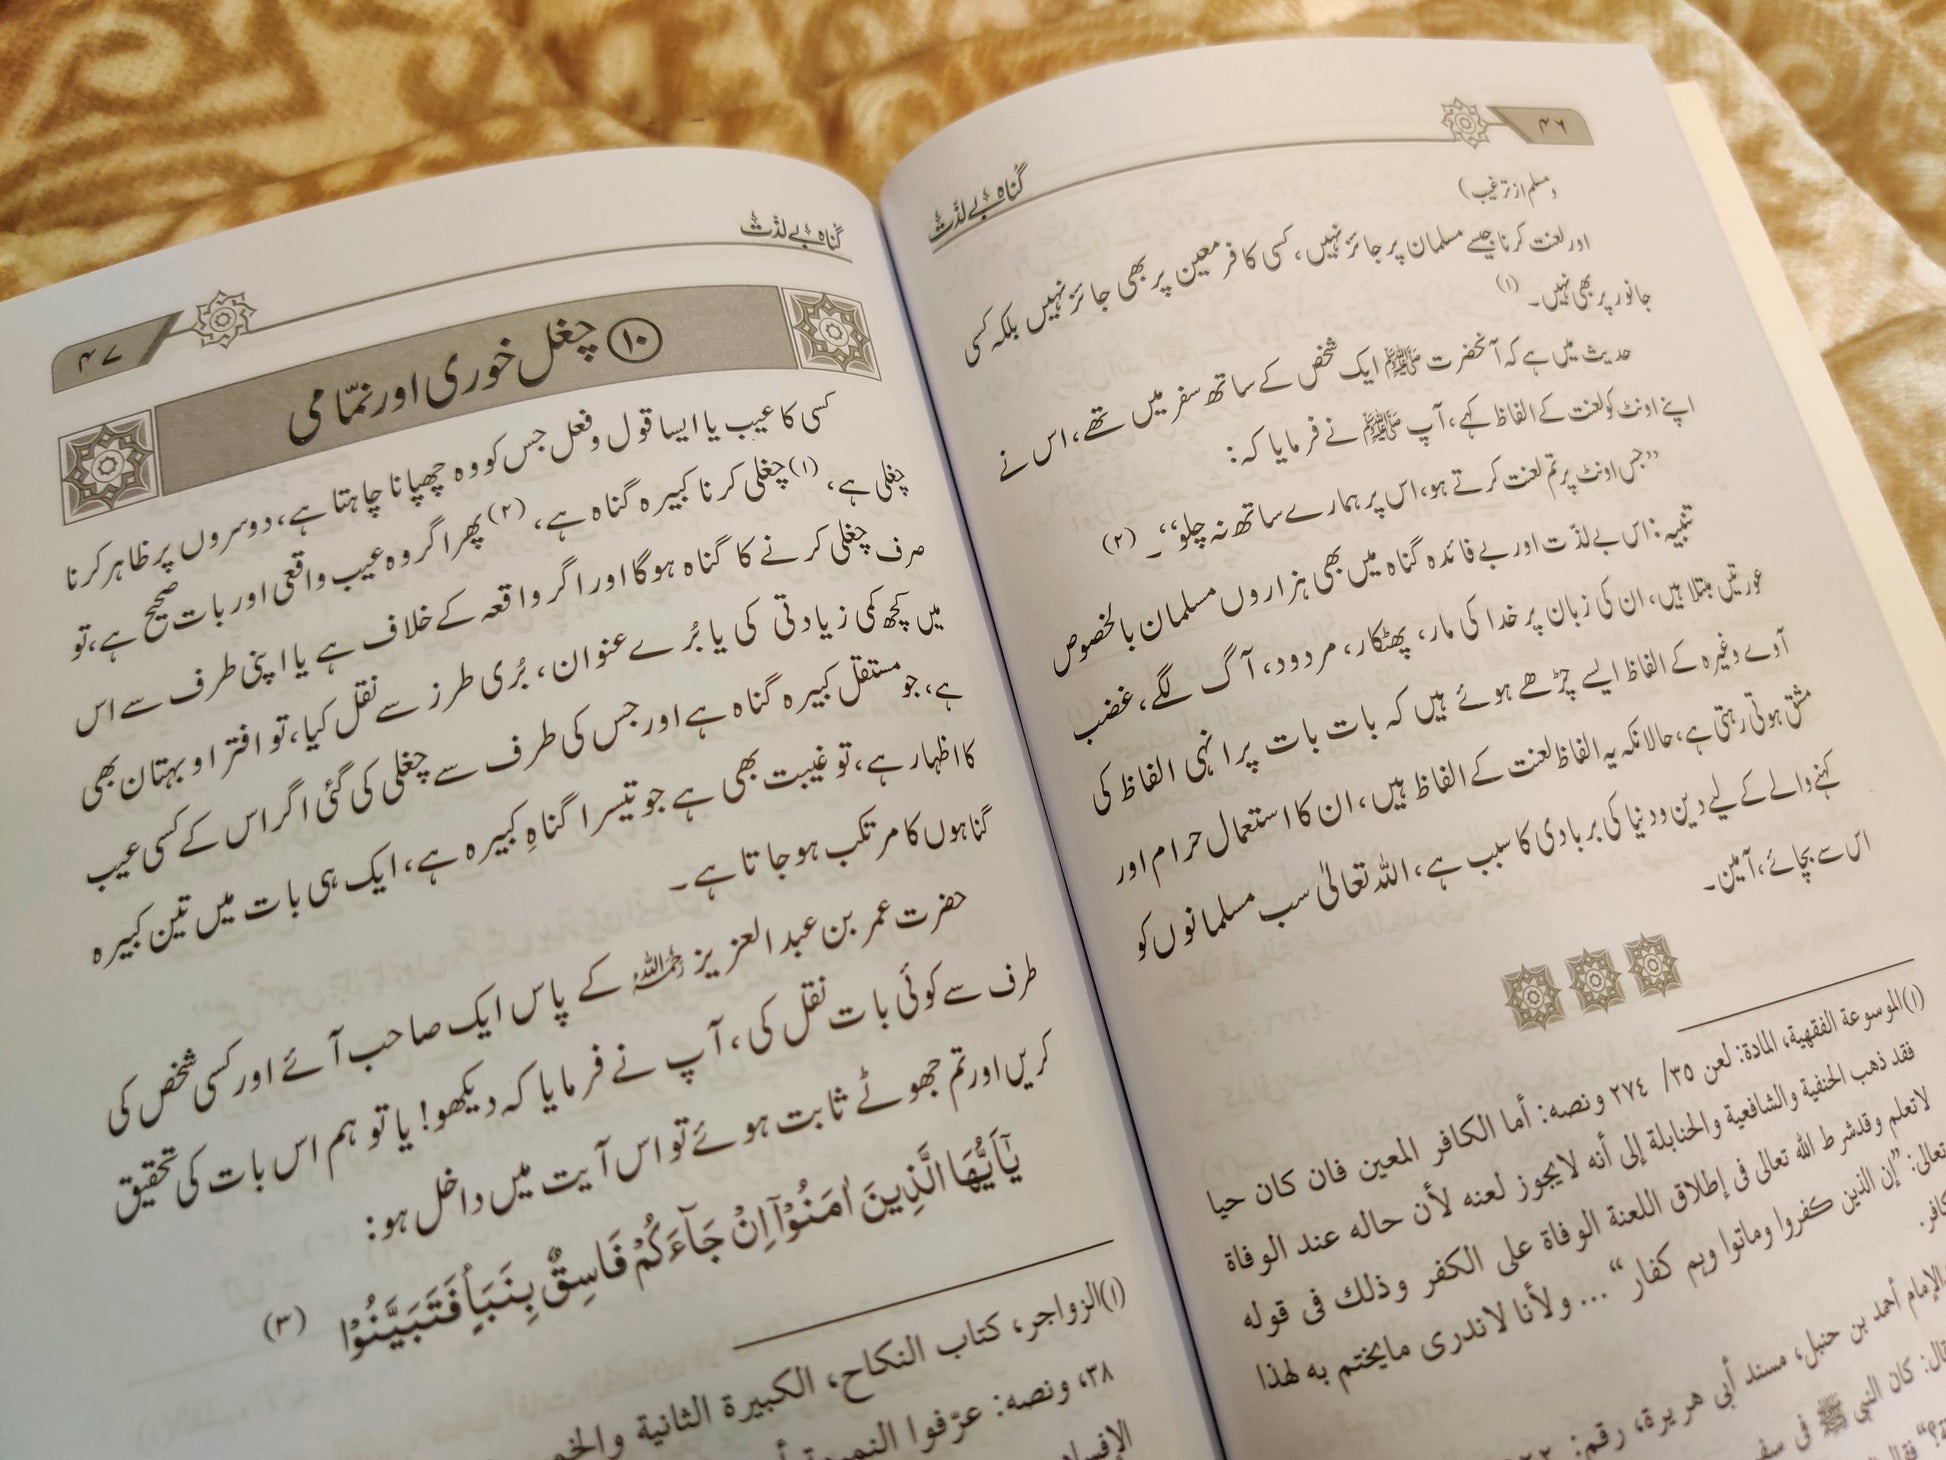 ۴۶
گناہِ بے لذّت
ومسلم از ترغیب)
اور لعنت کرنا جیسے مسلمان پر جائز نہیں، کسی کافر معین پر بھی جائز نہیں بلکہ کسی
جانور پر بھی نہیں۔ (۱)
حدیث میں ہے کہ آنحضرت ﷺ ایک شخص کے ساتھ سفر میں تھے، اس نے
اپنے اونٹ کو لعنت کے الفاظ کہے، آپ ﷺ نے فرمایا کہ:
”جس اونٹ پر تم لعنت کرتے ہو، اس پر ہمارے ساتھ نہ چلو“۔ (۲)
تنبیہ: اس بے لذّت اور بے فائدہ گناہ میں بھی ہزاروں مسلمان بالخصوص
عورتیں مبتلا ہیں، ان کی زبان پر خدا کی مار، پھٹکار، مردود، آگ لگے، غضب
آوے وغیرہ کے الفاظ ایسے چڑھے ہوئے ہیں کہ بات بات پر انہی الفاظ کی
مشق ہوتی رہتی ہے، حالانکہ یہ الفاظ لعنت کے الفاظ ہیں، ان کا استعمال حرام اور
کہنے والے کے لیے دین و دنیا کی بربادی کا سبب ہے، اللہ تعالیٰ سب مسلمانوں کو
اس سے بچائے، آمین۔
(۱) الموسوعة الفقهية، المادة: لعن ٣٥/ ٢٧٤ ونصه: أما الكافر المعين فان كان حيا
فقد ذهب الحنفية والشافعية والحنابلة إلى أنه لايجوز لعنه لأن حاله عند الوفاة
لاتعلم وقدشرط الله تعالى فى إطلاق اللعنة الوفاة على الكفر وذلك فى قوله
تعالى: ”إن الذين كفروا وماتوا وہم كفار“... ولأنا لاندرى مايختم به لهذا
كافر.
الإمام أحمد بن حنبل، مسند أبى هريرة، رقم:
قال: كان النبي ﷺ فى
گناہِ بے لذّت
۴۷
(۱۰) چغل خوری اور نمّامی
کسی کا عیب یا ایسا قول و فعل جس کو وہ چھپانا چاہتا ہے، دوسروں پر ظاہر کرنا
چغلی ہے، (۱) چغلی کرنا کبیرہ گناہ ہے، (۲) پھر اگر وہ عیب واقعی اور بات صحیح ہے، تو
صرف چغلی کرنے کا گناہ ہوگا اور اگر واقعہ کے خلاف ہے یا اپنی طرف سے اس
میں کچھ کمی زیادتی کی یا بُرے عنوان، بُری طرز سے نقل کیا، تو افترا و بہتان بھی
ہے، جو مستقل کبیرہ گناہ ہے اور جس کی طرف سے چغلی کی گئی اگر اس کے کسی عیب
کا اظہار ہے، تو غیبت بھی ہے جو تیسرا گناہِ کبیرہ ہے، ایک ہی بات میں تین کبیرہ
گناہوں کا مرتکب ہو جاتا ہے۔
حضرت عمر بن عبد العزیز رحمہ اللہ کے پاس ایک صاحب آئے اور کسی شخص کی
طرف سے کوئی بات نقل کی، آپ نے فرمایا کہ دیکھو! یا تو ہم اس بات کی تحقیق
کریں اور تم جھوٹے ثابت ہوئے تو اس آیت میں داخل ہو:
يٰٓاَيُّهَا الَّذِيْنَ اٰمَنُوْٓا اِنْ جَآءَكُمْ فَاسِقٌۢ بِنَبَاٍ فَتَبَيَّنُوْٓا (۳)
(۱) الزواجر، كتاب النكاح، الكبيرة الثانية
٣٨، ونصه: عرّفوا النميمة